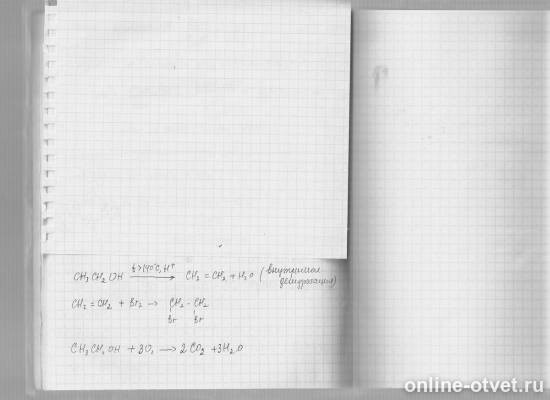 CH₃CH₂OH t>140°C, H⁺ → CH₂ = CH₂ + H₂O (внутримол
дегидратация)
CH₂ = CH₂ + Br₂ → CH₂ - CH₂
Br Br
CH₃CH₂OH + 3O₂ → 2CO₂ + 3H₂O
online-otvet.ru